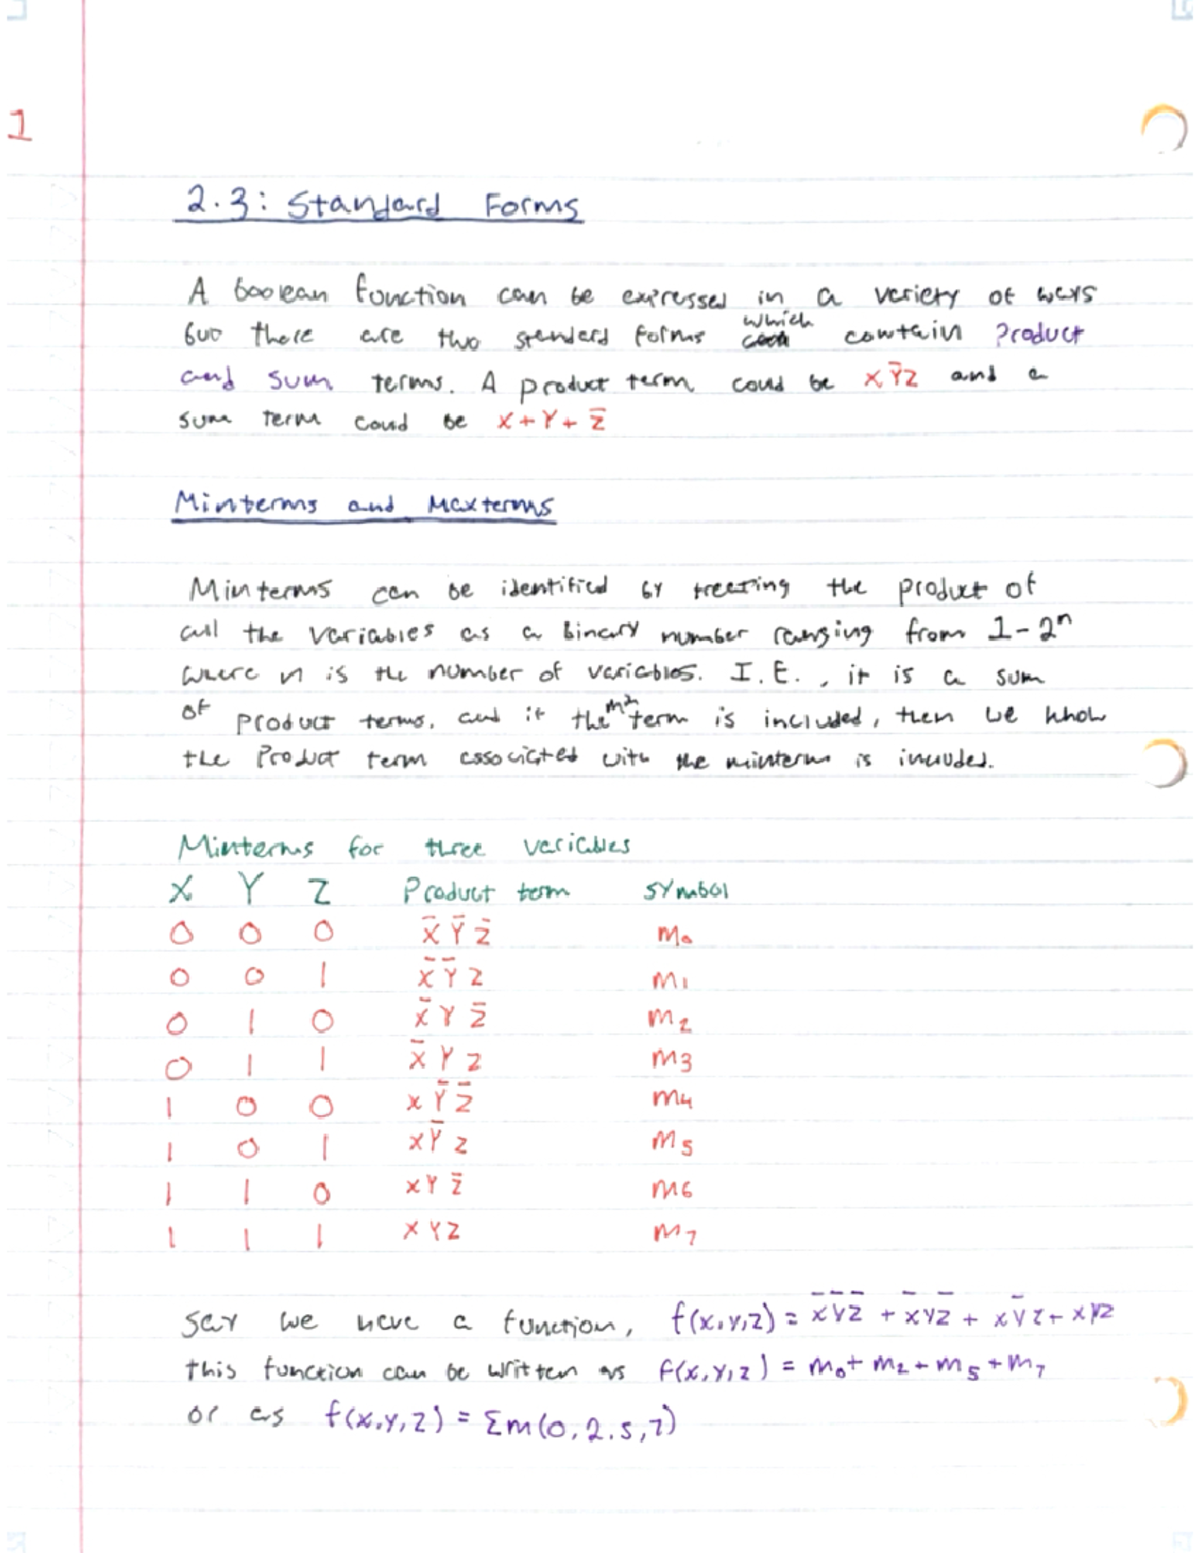 1
2.3: Standard Forms
A boolean function can be expressed in a variety of ways
but there are two standard forms which contain Product
and sum terms. A product term could be XY̅Z and a
sum term could be X+Y+Z̅
Minterms and Maxterms
Minterms can be identified by treating the product of
all the variables as a binary number ranging from 1-2ⁿ
where n is the number of variables. I.E., it is a sum
of product terms, and if the m² term is included, then we know
the Product term associated with the minterm is included.
Minterms for three variables
X Y Z Product term symbol
0 0 0 X̅Y̅Z̅ m₀
0 0 1 X̅Y̅Z m₁
0 1 0 X̅YZ̅ m₂
0 1 1 X̅YZ m₃
1 0 0 XY̅Z̅ m₄
1 0 1 XY̅Z m₅
1 1 0 XYZ̅ m₆
1 1 1 XYZ m₇
say we have a function, f(x,y,z) = X̅Y̅Z̅ + X̅YZ̅ + XY̅Z + XYZ
this function can be written as f(x,y,z) = m₀+ m₂+m₅+m₇
or as f(x,y,z) = Σm(0,2,5,7)